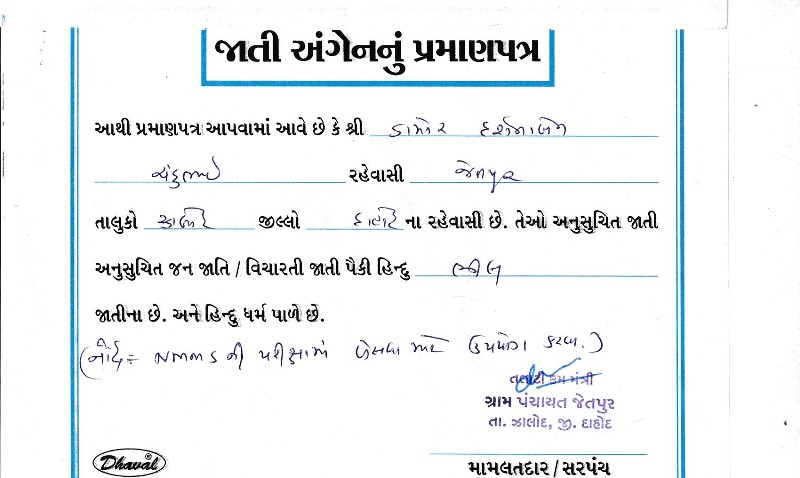 જાતી અંગેનનું પ્રમાણપત્ર
આથી પ્રમાણપત્ર આપવામાં આવે છે કે શ્રી ડામોર દર્શનાબેન
ચંદુભાઇ રહેવાસી જેતપુર
તાલુકો ઝાલોદ જીલ્લો દાહોદ ના રહેવાસી છે. તેઓ અનુસુચિત જાતી
અનુસુચિત જન જાતિ / વિચારતી જાતી પૈકી હિન્દુ ભીલ
જાતીના છે. અને હિન્દુ ધર્મ પાળે છે.
(નોંધ = NMMS ની પરીક્ષામાં બેસવા માટે ઉપયોગ કરવા.)
તલાટી કમ મંત્રી
ગ્રામ પંચાયત જેતપુર
તા. ઝાલોદ, જી. દાહોદ
Dhaval®
મામલતદાર / સરપંચ